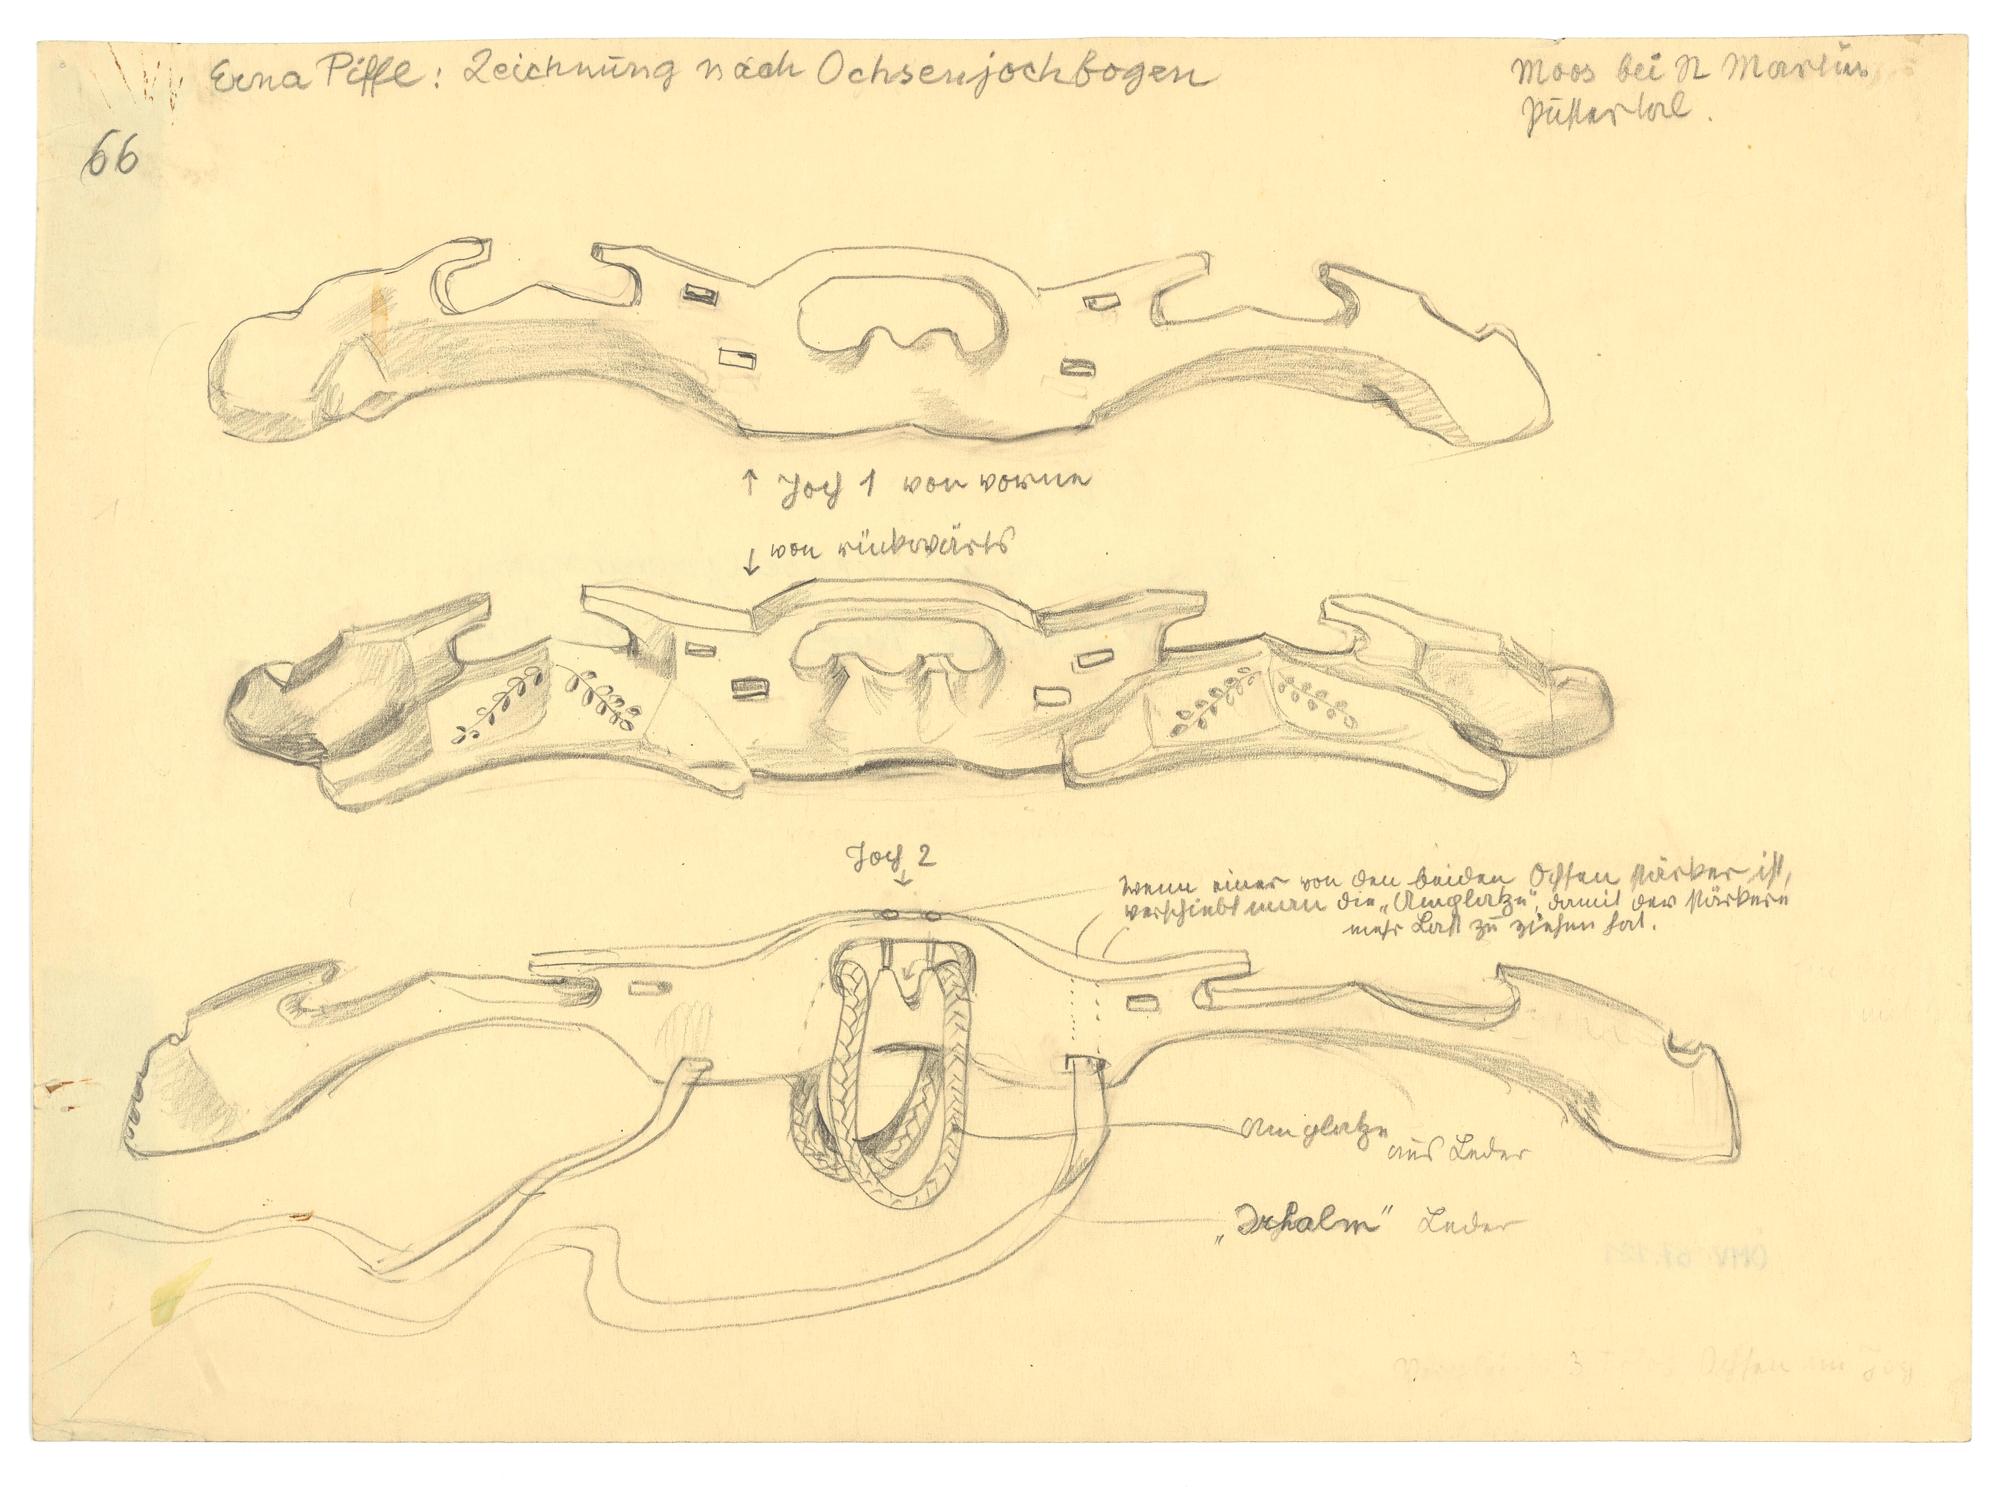 Erna Piffl: Zeichnung nach Ochsenjochbogen
Moos bei N Martin
Pustertal.
66
↑ Joch 1 von vorne
↓ von rückwärts
Joch 2
↓
wenn einer von den beiden Ochsen stärker ist,
verschiebt man die „Amglatze", damit der Stärkere
mehr Last zu ziehen hat.
Amglatze
aus Leder
„Irhalm" Leder
Ochsen im Joch